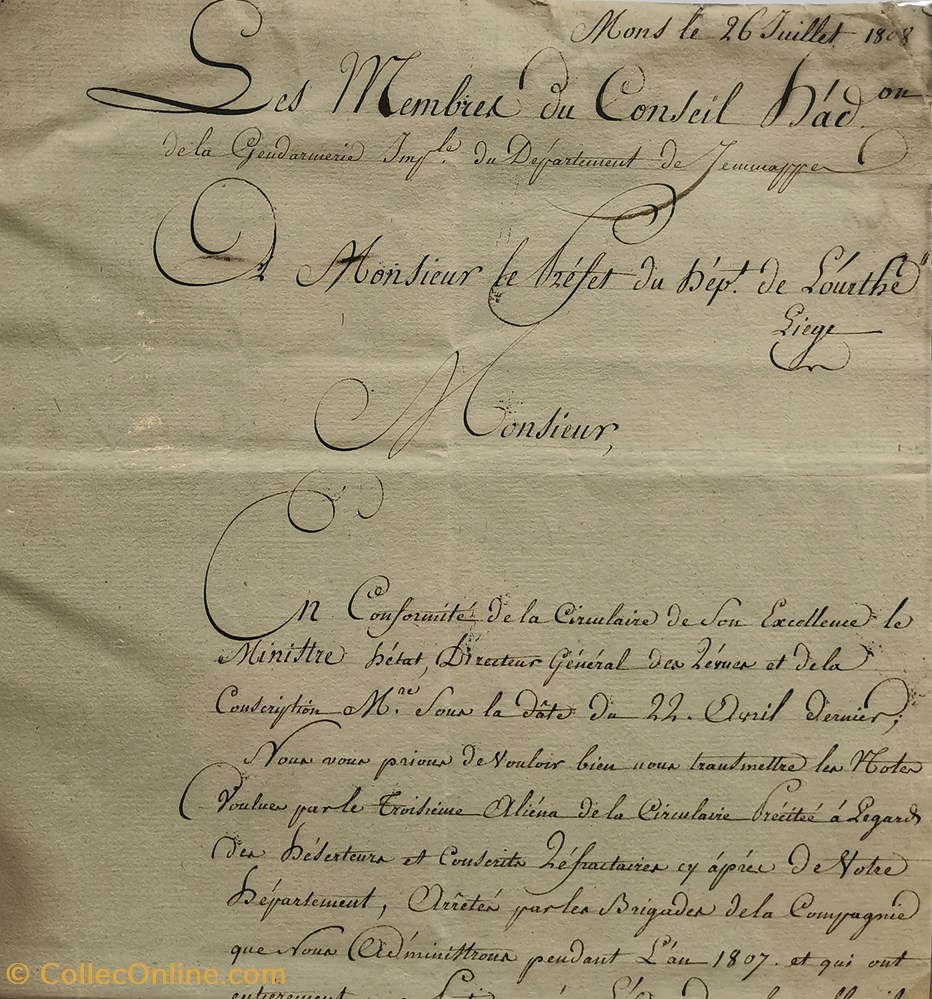 Mons le 26 Juillet 1808
Les Membres du Conseil D'ad.on
de la Gendarmerie Imp.le du Département de Jemmappes
A Monsieur le Préfet du Dép.t de L'ourthe
Liege
Monsieur,
En Conformité de la Circulaire de Son Excellence le
Ministre D'état, Directeur Général des Révues et de la
Conscription M.re Sous la dâte du 22. Avril dernier;
Nous vous prions de Vouloir bien nous transmettre les Notes
Voulues par le Troisième Aliéna de la Circulaire Précitée à Legard
des Déserteurs et Conscrits Réfractaires cy áprés de Votre
Département, Arrêtés par les Brigades de la Compagnie
que Nous Administrons pendant L'an 1807. et qui ont
entièrement
© CollecOnline.com